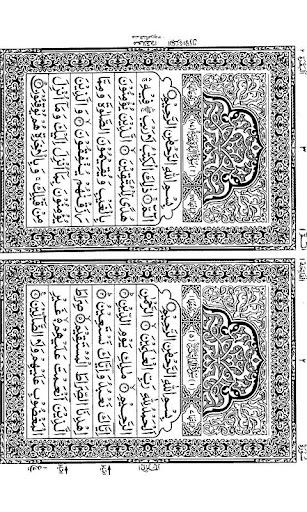 بِسْمِ اللهِ الرَّحْمٰنِ الرَّحِيْمِ
اَلْحَمْدُ لِلّٰهِ رَبِّ الْعٰلَمِيْنَ ۙ الرَّحْمٰنِ
الرَّحِيْمِ ۙ مٰلِكِ يَوْمِ الدِّيْنِ ۙ
اِيَّاكَ نَعْبُدُ وَاِيَّاكَ نَسْتَعِيْنُ ۙ
اِهْدِنَا الصِّرَاطَ الْمُسْتَقِيْمَ ۙ صِرَاطَ
الَّذِيْنَ اَنْعَمْتَ عَلَيْهِمْ ۙ غَيْرِ
الْمَغْضُوْبِ عَلَيْهِمْ وَلَا الضَّآلِّيْنَ
بِسْمِ اللهِ الرَّحْمٰنِ الرَّحِيْمِ
الٓمّٓ ۚ ذٰلِكَ الْكِتٰبُ لَا رَيْبَ ۛ فِيْهِ ۛ
هُدًى لِّلْمُتَّقِيْنَ ۙ الَّذِيْنَ يُؤْمِنُوْنَ
بِالْغَيْبِ وَيُقِيْمُوْنَ الصَّلٰوةَ وَمِمَّا
رَزَقْنٰهُمْ يُنْفِقُوْنَ ۙ وَالَّذِيْنَ
يُؤْمِنُوْنَ بِمَآ اُنْزِلَ اِلَيْكَ وَمَآ اُنْزِلَ
مِنْ قَبْلِكَ ۚ وَبِالْاٰخِرَةِ هُمْ يُوْقِنُوْنَ